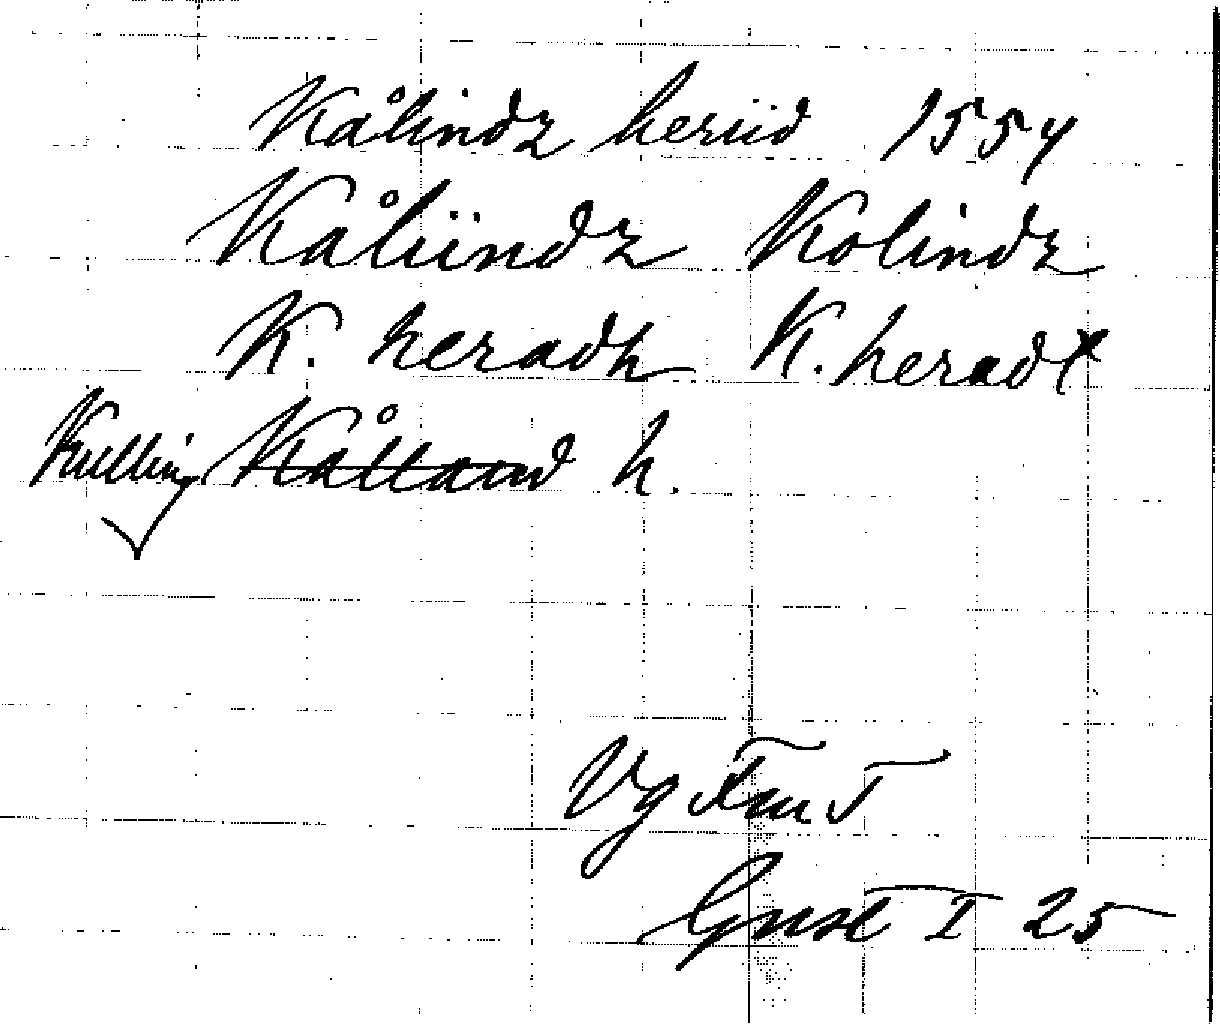 Kålindz heriid 1554
Kåliindz Kolindz
K. heradh K. heradt
Kulling Kålland h.
Vg Fru T
Gust I 25